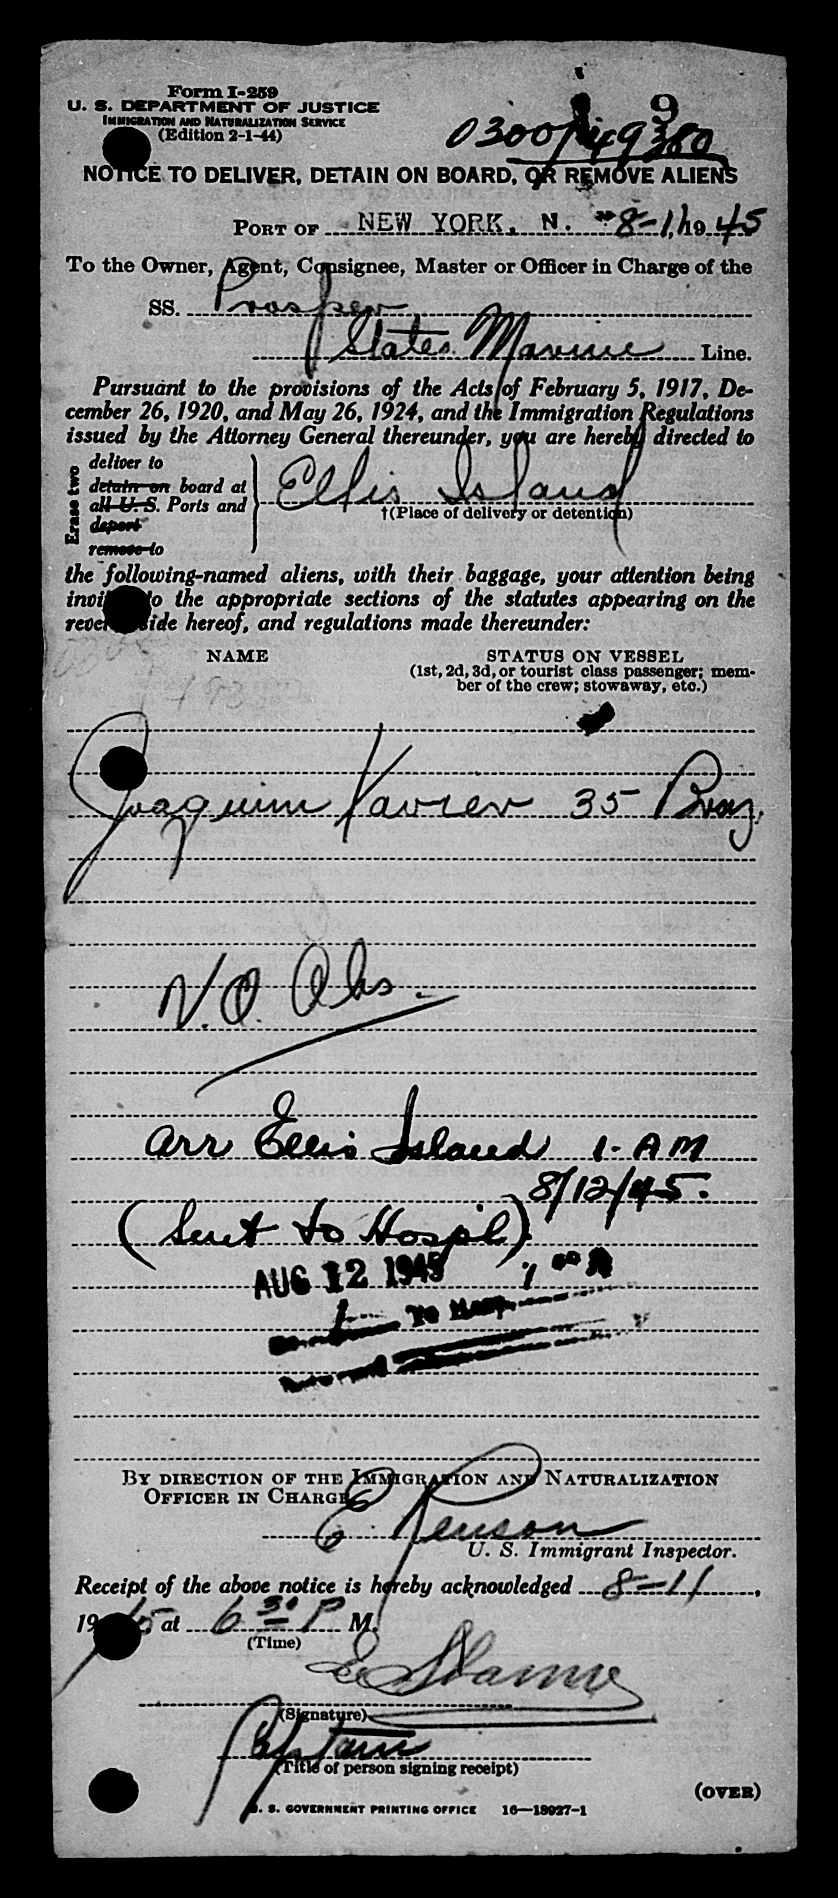 Form I-259
U. S. DEPARTMENT OF JUSTICE
IMMIGRATION AND NATURALIZATION SERVICE
(Edition 2-1-44)
9
0300/49380
NOTICE TO DELIVER, DETAIN ON BOARD, OR REMOVE ALIENS
PORT OF NEW YORK, N. 8-11, 1945
To the Owner, Agent, Consignee, Master or Officer in Charge of the
SS. Prosper
States Marine Line.
Pursuant to the provisions of the Acts of February 5, 1917, De-
cember 26, 1920, and May 26, 1924, and the Immigration Regulations
issued by the Attorney General thereunder, you are hereby directed to
Erase two
deliver to
detain on board at
all U. S. Ports and
deport
remove to
Ellis Island
†(Place of delivery or detention)
the following-named aliens, with their baggage, your attention being
to the appropriate sections of the statutes appearing on the
side hereof, and regulations made thereunder:
NAME STATUS ON VESSEL
(1st, 2d, 3d, or tourist class passenger; mem-
ber of the crew; stowaway, etc.)
Joaquim Xavier 35 Braz.
N.O. Obs.
Arr Ellis Island 1- AM
8/12/45.
(Sent to Hospl)
AUG 12 1945 1 00 A
1 TO HOSP.
BY DIRECTION OF THE IMMIGRATION AND NATURALIZATION
OFFICER IN CHARGE
E. Renson
U. S. Immigrant Inspector.
Receipt of the above notice is hereby acknowledged 8-11,
1945 at 6 30 P M.
(Time)
(Signature)
Captain
(Title of person signing receipt)
(OVER)
U. S. GOVERNMENT PRINTING OFFICE 16—18927-1